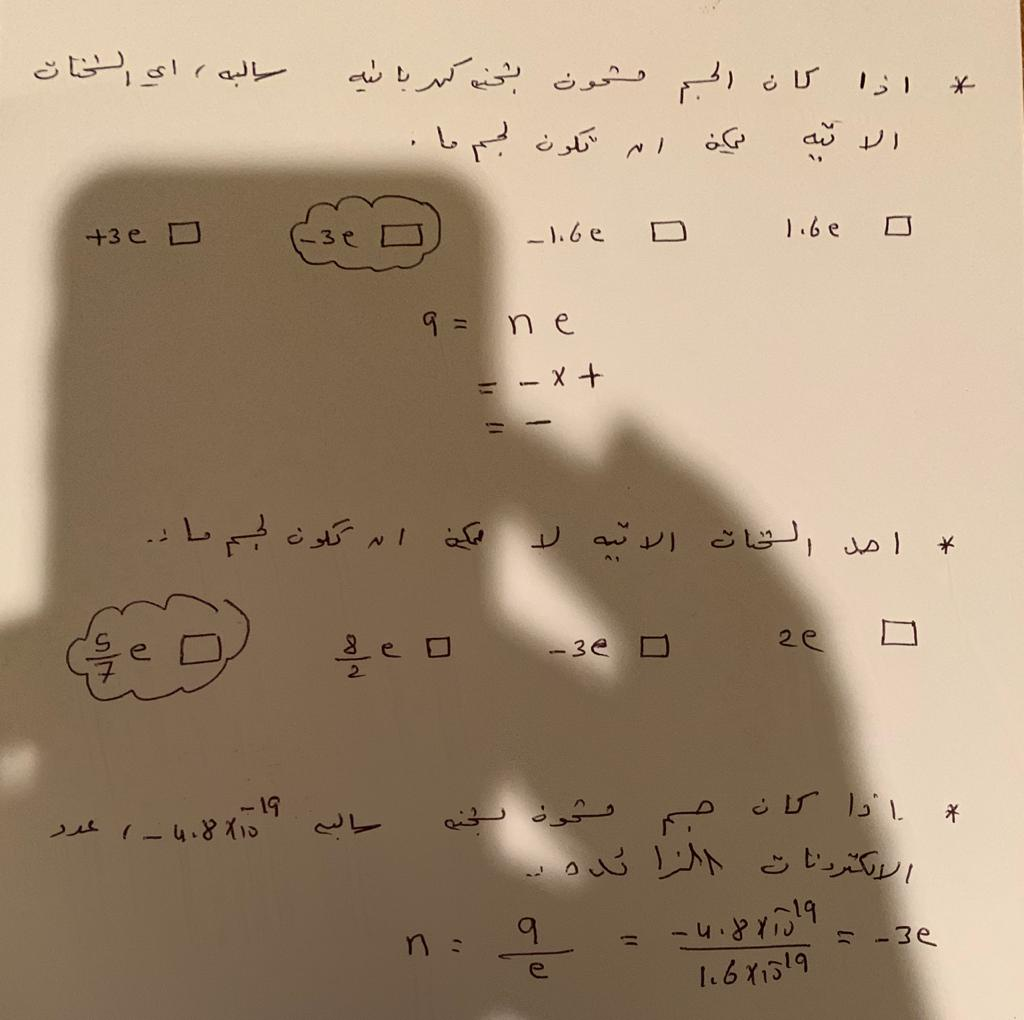 * اذا كان الجسم مشحون بشحنه كهربائيه سالبه ، اي الشحنات
الاتيه يمكن ان تكون لجسم ما .
□ 1.6e □ -1.6e □ -3e □ +3e
q = n e
= - x +
= -
* احد الشحنات الاتيه لا يمكن ان تكون لجسم ما :.
□ 2e □ -3e □ 8/2 e □ 5/7 e
* اذا كان جسم مشحون بشحنه سالبه -4.8x10^-19 ، عدد
الالكترونات الزائده :.
n = q/e = -4.8x10^-19 / 1.6x10^-19 = -3e